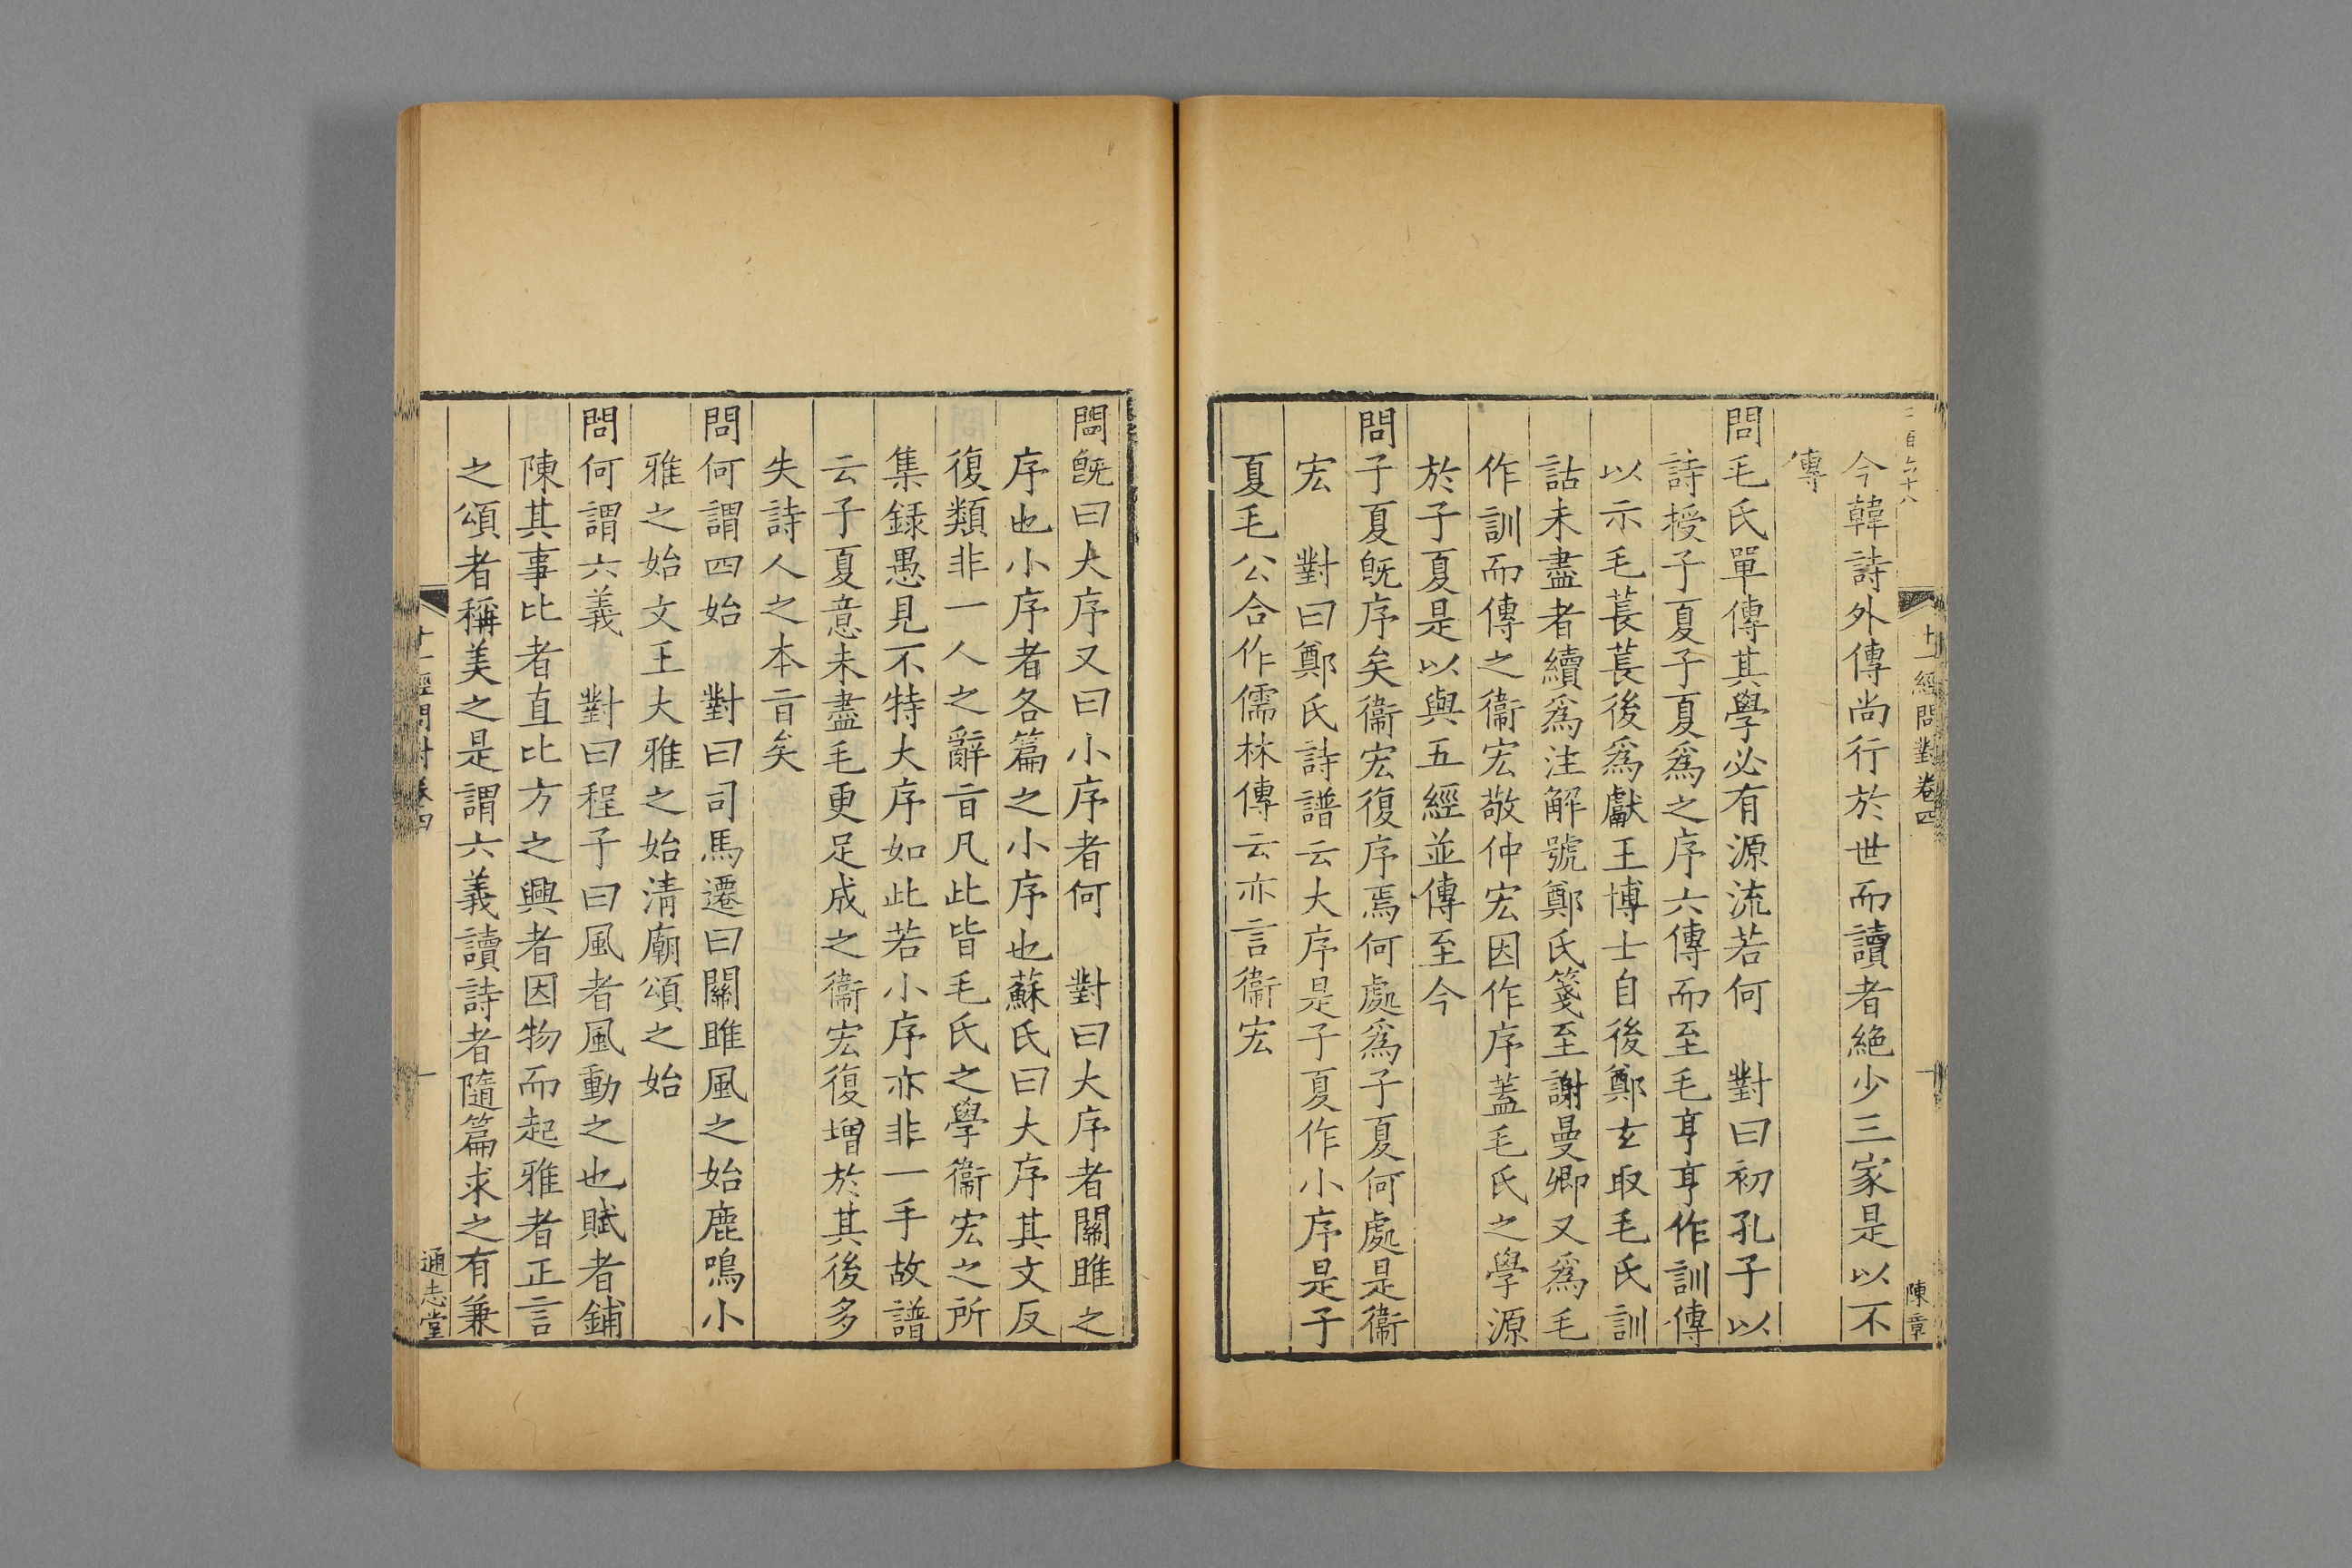 十一經問對卷四
一
陳章
今韓詩外傳尚行於世而讀者絶少三家是以不
傳
問毛氏單傳其學必有源流若何　對曰初孔子以
詩授子夏子夏爲之序六傳而至毛亨亨作訓傳
以示毛萇萇後爲獻王博士自後鄭玄取毛氏訓
詁未盡者續爲注解號鄭氏箋至謝曼卿又爲毛
作訓而傳之衞宏敬仲宏因作序蓋毛氏之學源
於子夏是以與五經並傳至今
問子夏旣序矣衞宏復序焉何處爲子夏何處是衞
宏　對曰鄭氏詩譜云大序是子夏作小序是子
夏毛公合作儒林傳云亦言衞宏
問旣曰大序又曰小序者何　對曰大序者關雎之
序也小序者各篇之小序也蘇氏曰大序其文反
復類非一人之辭㫖凡此皆毛氏之學衞宏之所
集録愚見不特大序如此若小序亦非一手故譜
云子夏意未盡毛更足成之衞宏復增於其後多
失詩人之本㫖矣
問何謂四始　對曰司馬遷曰關雎風之始鹿鳴小
雅之始文王大雅之始淸廟頌之始
問何謂六義　對曰程子曰風者風動之也賦者鋪
陳其事比者直比方之興者因物而起雅者正言
之頌者稱美之是謂六義讀詩者隨篇求之有兼
十一經問對卷四
通志堂